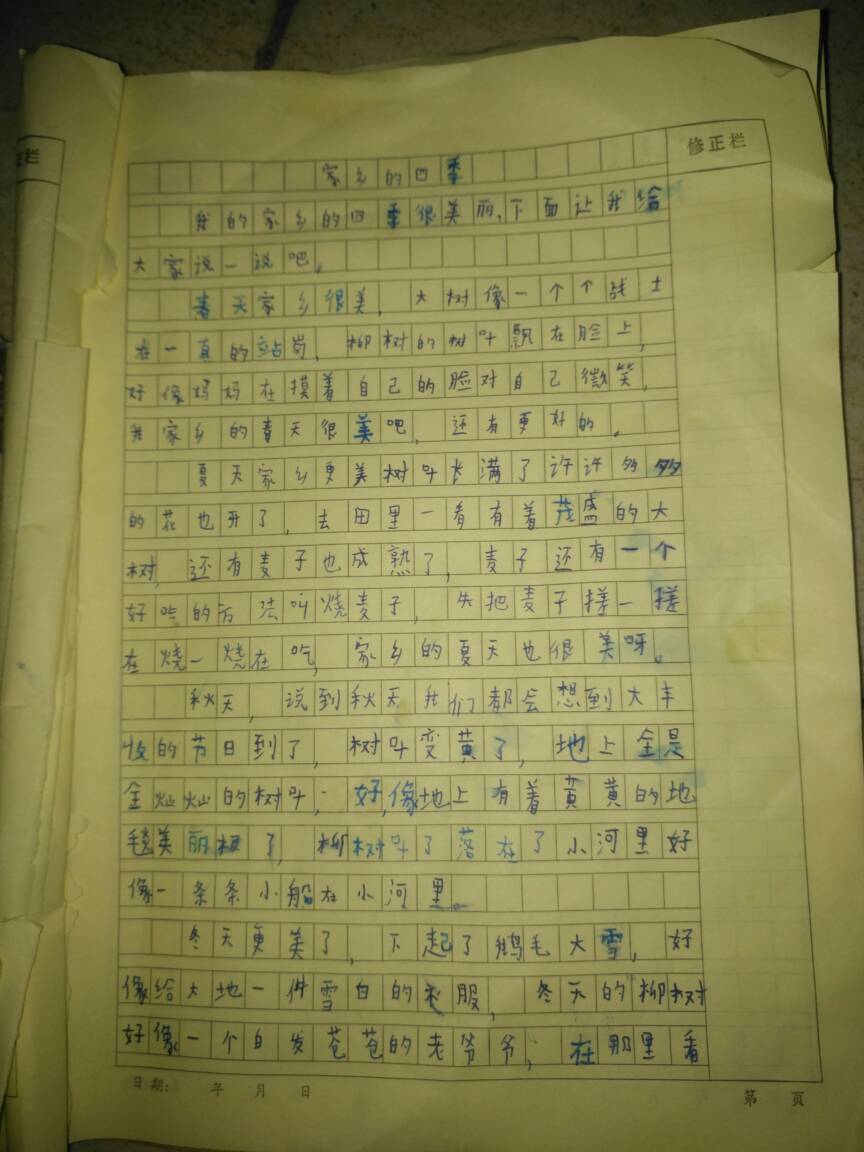 正栏
修正栏
家乡的四季
我的家乡的四季很美丽,下面让我给
大家说一说吧。
春天家乡很美,大树像一个个战士
在一直的站岗,柳树的树叶飘在脸上,
好像妈妈在摸着自己的脸对自己微笑,
我家乡的春天很美吧,还有更好的。
夏天家乡更美树叶长满了许许多多
的花也开了,去田里一看有着茂盛的大
树,还有麦子也成熟了,麦子还有一个
好吃的方法叫烧麦子,先把麦子搓一搓
在烧一烧在吃,家乡的夏天也很美呀。
秋天,说到秋天我们都会想到大丰
收的节日到了,树叶变黄了,地上全是
金灿灿的树叶,好像地上有着黄黄的地
毯美丽极了,柳树叶了落在了小河里好
像一条条小船在小河里。
冬天更美了,下起了鹅毛大雪,好
像给大地一件雪白的衣服,冬天的柳树
好像一个白发苍苍的老爷爷,在那里看
日期: 年 月 日
第 页